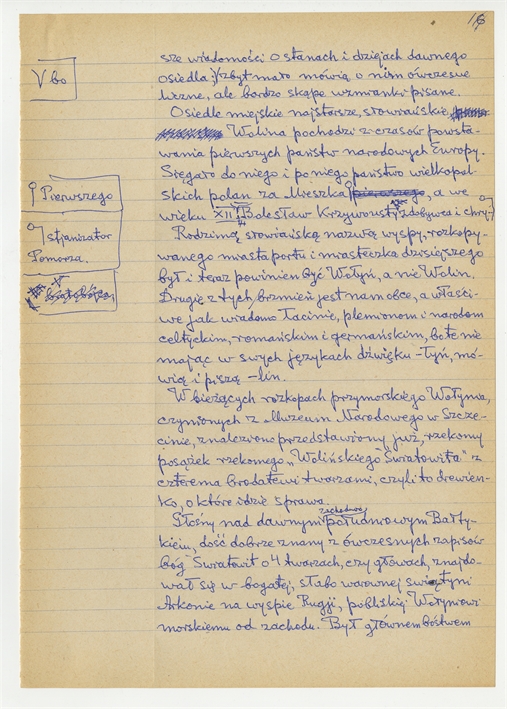 16
sze wiadomości o stanach i dziejach dawnego
V bo
osiedla, V zbyt mało mówią o nim ówczesne
liczne, ale bardzo skąpe wzmianki pisane.
Osiedle miejskie najstarsze, słowiańskie,
Wolina pochodzi z czasów powsta-
wania pierwszych państw narodowych Europy.
Sięgało do niego i po niego państwo wielkopol-
Pierwszego
skich polan za Mieszka pierwszego, a we
wieku XII Bolesław Krzywousty, zdobywca i chry-
stjanizator
Pomorza.
Rodzimą słowiańską nazwą wyspy, rozkopy-
wanego miasta portu i miasteczka dzisiejszego
był i teraz powinien być Wołyń, a nie Wolin.
Drugie z tych brzmień jest nam obce, a właści-
we jak wiadomo łacinie, plemionom i narodom
celtyckim, romańskim i germańskim, bo te nie
mając w swych językach dźwięku -łyń, mó-
wią i piszą -lin.
W bieżących rozkopach przymorskiego Wołynia,
czynionych z Muzeum Narodowego w Szcze-
cinie, znaleziono przedstawiony już, rzekomy
posążek rzekomego „Wolińskiego Światowita" z
czterema brodatemi twarzami, czyli to drewien-
ko, o które idzie sprawa.
zachodnio
Głośny nad dawnym południowym Bałty-
kiem, dość dobrze znany z ówczesnych zapisów
bóg Światowit o 4 twarzach, czy głowach, znajdo-
wał się w bogatej, słabo warownej świątyni
Arkonie na wyspie Rugji, pobliskiej Wołyniowi
morskiemu od zachodu. Był głównem bóstwem